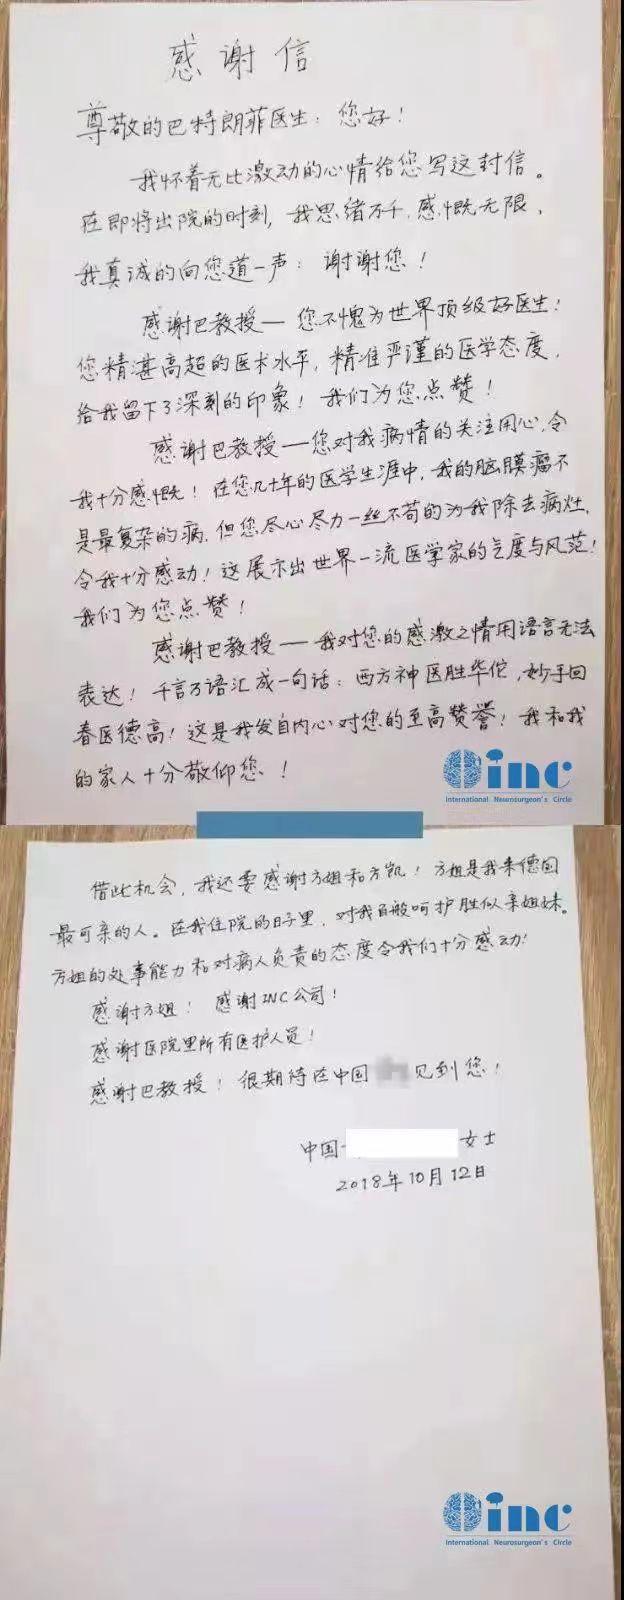 感谢信
尊敬的巴特朗菲医生：您好！
我怀着无比激动的心情给您写这封信。
在即将出院的时刻，我思绪万千，感慨无限，
我真诚的向您道一声：谢谢您！
感谢巴教授—您不愧为世界顶级好医生！
您精湛高超的医术水平，精准严谨的医学态度，
给我留下了深刻的印象！我们为您点赞！
感谢巴教授—您对我病情的关注用心，令
我十分感慨！在您几十年的医学生涯中，我的脑膜瘤不
是最复杂的病，但您尽心尽力一丝不苟的为我除去病灶，
令我十分感动！这展示出世界一流医学家的气度与风范！
我们为您点赞！
感谢巴教授—我对您的感激之情用语言无法
表达！千言万语汇成一句话：西方神医胜华佗，妙手回
春医德高！这是我发自内心对您的至高赞誉！我和我
的家人十分敬仰您！
inc
International Neurosurgeon's Circle
借此机会，我还要感谢方姐和方凯！方姐是我来德国
最可亲的人。在我住院的日子里，对我百般呵护胜似亲姐妹。
方姐的处事能力和对病人负责的态度令我们十分感动！
感谢方姐！感谢INC公司！
感谢医院里所有医护人员！
感谢巴教授！很期待在中国 见到您！
中国 女士
2018年10月12日
inc
International Neurosurgeon's Circle